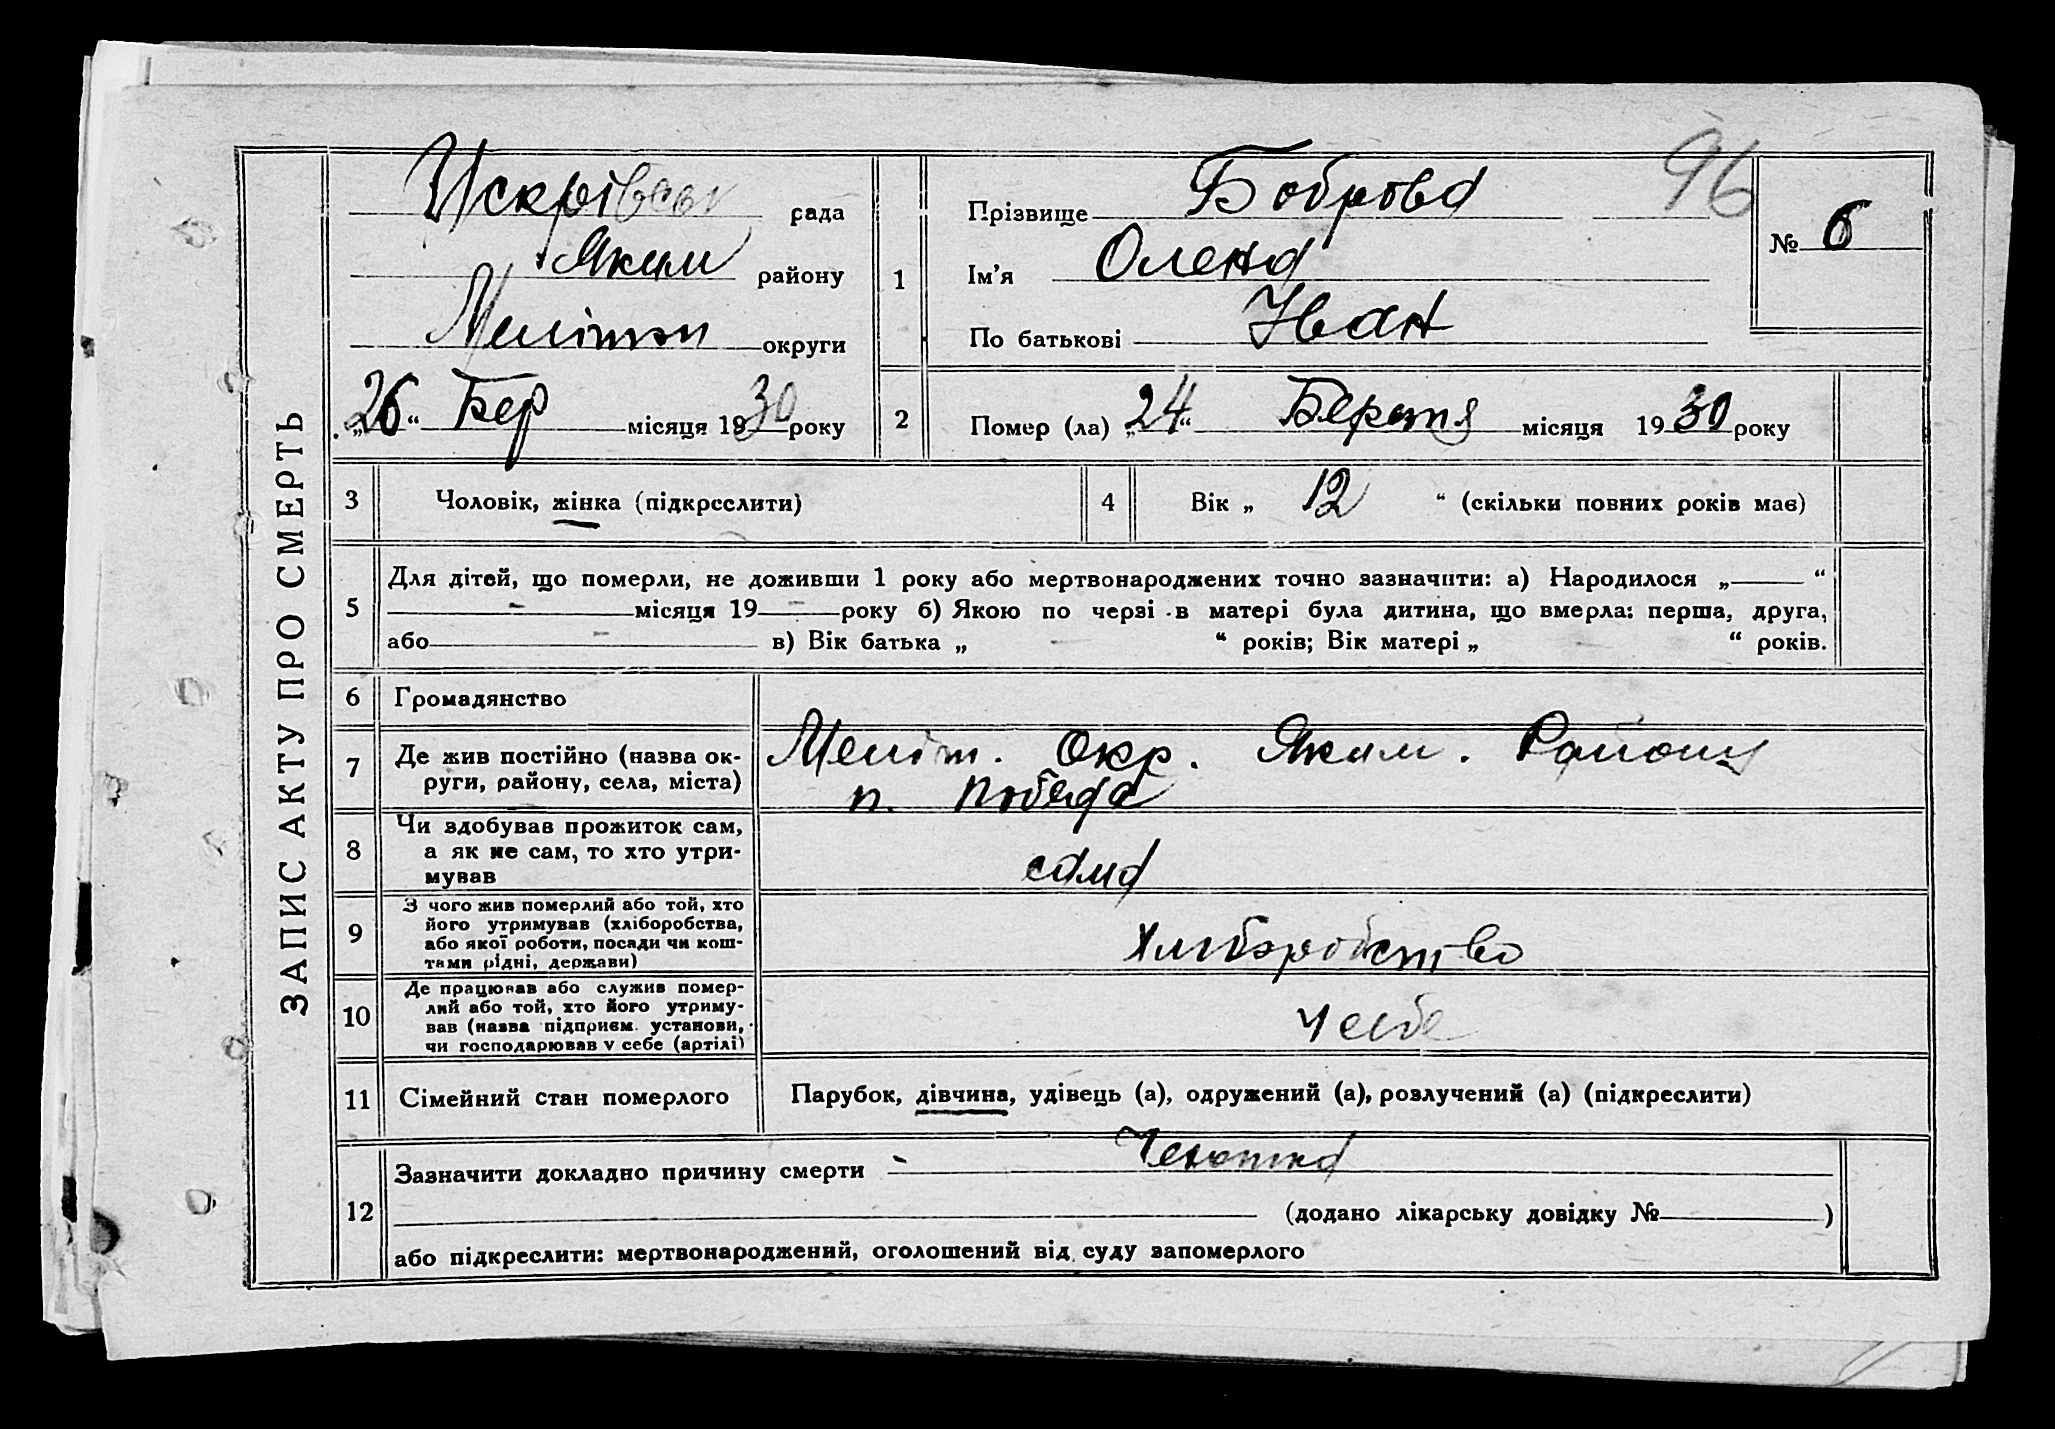 ЗАПИС АКТУ ПРО СМЕРТЬ
96
Искрівськ рада
Яким району
Мелітоп округи
„26“ Бер місяця 1930 року
1
Прізвище Боброва
Ім'я Олена
По батькові Іван
№ 6
2
Помер (ла) „24“ Березня місяця 1930 року
3
Чоловік, жінка (підкреслити)
4
Вік „ 12 “ (скільки повних років має)
5
Для дітей, що померли, не доживши 1 року або мертвонароджених точно зазначити: а) Народилося „——“
——— місяця 19—— року б) Якою по черзі в матері була дитина, що вмерла: перша, друга,
або ——— в) Вік батька „ — “ років; Вік матері „ “ років.
6
Громадянство
7
Де жив постійно (назва ок-
руги, району, села, міста)
Меліт. Окр. Яким. Району
п. Победа
8
Чи здобував прожиток сам,
а як не сам, то хто утри-
мував
сама
9
З чого жив померлий або той, хто
його утримував (хліборобства,
або якої роботи, посади чи кош-
тами рідні, держави)
Хлиборобство
10
Де працював або служив помер-
лий або той, хто його утриму-
вав (назва підприєм. установи,
чи господарював у себе (артілі)
У себе
11
Сімейний стан померлого
Парубок, дівчина, удівець (а), одружений (а), розлучений (а) (підкреслити)
12
Зазначити докладно причину смерти
(додано лікарську довідку № )
або підкреслити: мертвонароджений, оголошений від суду запомерлого